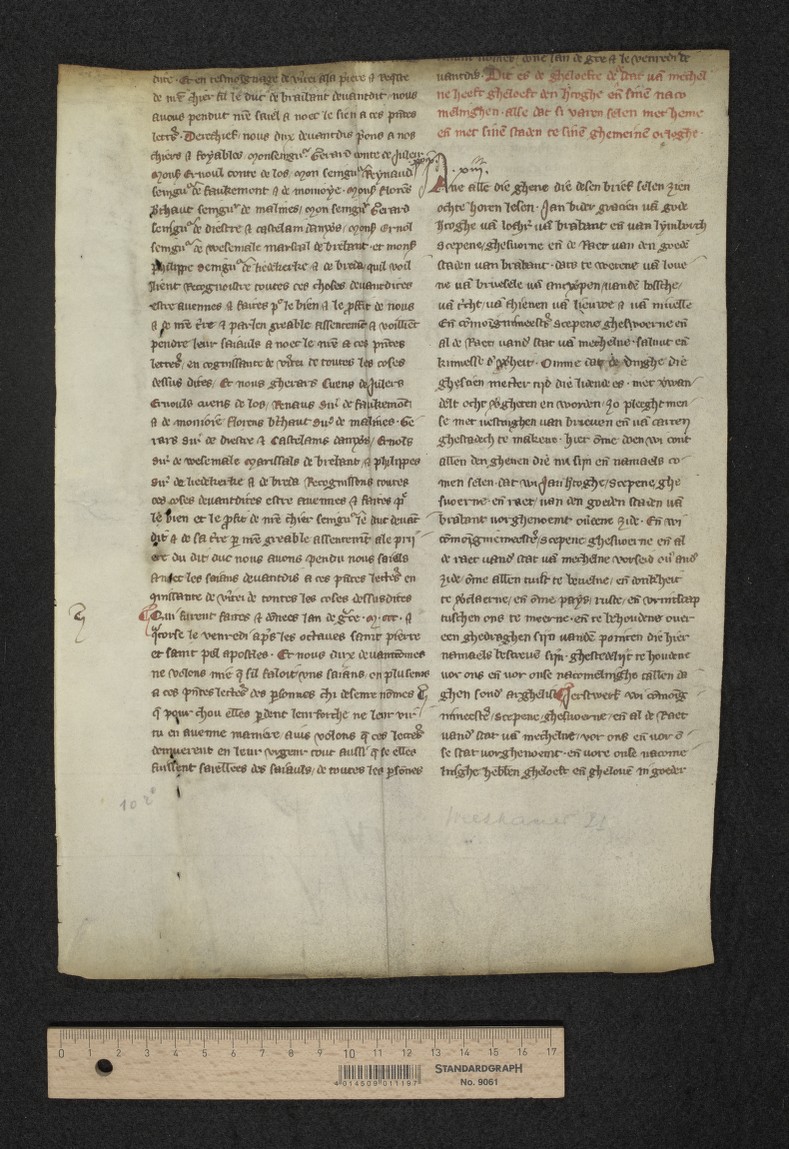 dute · Et en tesmoignage de v̄itei a sa piere ⁊ Reqste
de mr̄e chier fil le duc de braibant devantdit · nous
avons pendut nr̄e saiel a noec le sien a ces pn̄tes
lettrˢ · Derechief · nous dux devantdis pͥons a nos
chiers ⁊ foyables
monsˢ Ernoul conte de los / mon seingͬ Reynaud
seingͬ de faukemont ⁊ de monioye · monsˢ floren̄s
b̄thaut seingͬ de malines / mon seingͬ Gerard
seingͬ de diestre ⁊ castelain danv̄s / monsˢ Ernol
seingͬ de wesemale marscal de brabant · et monsˢ
philippe seingͬ de liedekerke ⁊ de breda / quil voil
lient Recognoistre toutes ces choses devantdites
estre avennes ⁊ faites pͬ le bien ⁊ le pͦfit de nous
⁊ de nr̄e t̄re ⁊ par len greable assentemt̄ ⁊ voillent
pendre leur saiauls a noec le nr̄e a ces pn̄tes
lettrˢ / en cognissance de v̄itei de toutes les coses
dessus dites / Et nous gherars Cuens de Julers
Ernouls cuens de los / Renaus sirˢ de faukemōt
⁊ de monioie florens b̄thaut sirˢ de malines · Ge
rars sirˢ de Diestre ⁊ Castelains danv̄s / Ernols
sirˢ de wesemale marissals de brebant / ⁊ philippes
sirˢ de liedekerke ⁊ de breda Recognissons toutes
ces coses devantdites estre avennes ⁊ faites pͬ
le bien et le pͦfit de nr̄e chier seingͬ le duc devāt
dit ⁊ de sa t̄re p̄ nr̄e greable assentement ale pri
ere du dit duc nous avons pendu nous saiels
avoec les soians devantdis a ces pn̄tes lettrˢ en
gnissante de v̄itei de toutes les coses dessusdites
Qui furent faites ⁊ dōnees lan de grͣce · m · ccc · ⁊
qͣtorse le venredi apͬs les octaves saint pierre
et saint pol apostles · Et nous dux devantnōmes
ne volons mie q̄ sil faloit vns saians / en plusenrs
a ces pn̄tes lettrˢ des psonnes chi desenre nōmes
q̄ pour chou elles pdent leur forche ne leur vir
tu en aveune maniere / ains volons q̄ ces lettrˢ
demuerent en leur vigeur tout aussi q̄ se elles
fuissent saiellees des saiauls / de toutes les psōnes
nōmes · done lan de gr̄e ⁊ le venredi de
vantdis · Dit es de gheloefte de dͥ stat vā mechel
ne heeft gheloeft den h̄toghe en̄ sinē naco
melinghen · alse dat si varen selen met heme
en̄ met sinē staden te sinē ghemeinē orloghe ·
· xiii ·
Ane alle die ghene die desen brief selen zien
ochte horen lesen · Jan bider gracien vā gode
h̄toghe vā lothr̄ vā brabant en̄ van lymborch
scepene / ghesuorne en̄ de Raet van den goede
staden van brabant · dats te wetene vā love
ne vā bruesele vā antwpen / vandē bossche /
vā t̄icht / vā thienen vā lieuwe ⁊ vā nivelle
En̄ cōmoingnimeestr̄ᵉ scepene ghesworne en̄
al de Raet vandͬ stat vā mechelne · saluut en̄
kinnesse dͬ wͣrheit · Omme dat de dinghe die
ghescien metter tijd die lidende es · met vͬwan
delt ocht vͬgheten en worden / zo pleeght men
se met vestinghen van brieven en̄ vā carten
ghestadech te makene · hier ōme doen wi cont
allen den ghenen die nu sijn en̄ namaels co
men selen · dat wi Jan h̄toghe / scepene / ghe
suorne · en̄ raet / van den goeden staden vā
brabant vorghenoemt ouͤeene zide · En̄ wi
cōmoignimeestr̄ᵉ / scepene ghesuorne en̄ al
de raet vandͬ stat vā mechelne vorseid ouͤ andͬ
zide / ōme allen twist te bevelne / en̄ donkͬheit
te vͬclaerne / en̄ ōme pays / ruste / en̄ vrintscap
tuschen ons te meerne · en̄ te behoudene over
een ghedraghen sijn vandē pointen die hier
namaels bescreuē sijn · ghestedelijc te houdene
vor ons en̄ vor onse nacomelinghe tallen da
ghen sondͬ arghelist Jerstwerf wi cōmoīg
nimeestr̄ᵉ / scepene / ghesuorne / en̄ al de Raet
vandͬ stat vā mechelne / vor ons en̄ vor ō
se stat vorghenoemt · en̄ vore onse nacome
linghe hebben gheloeft en̄ ghelovē in goeder
102
0 1 2 3 4 5 6 7 8 9 10 11 12 13 14 15 16 17
4 014509 011197
STANDARDGRAPH
No. 9061